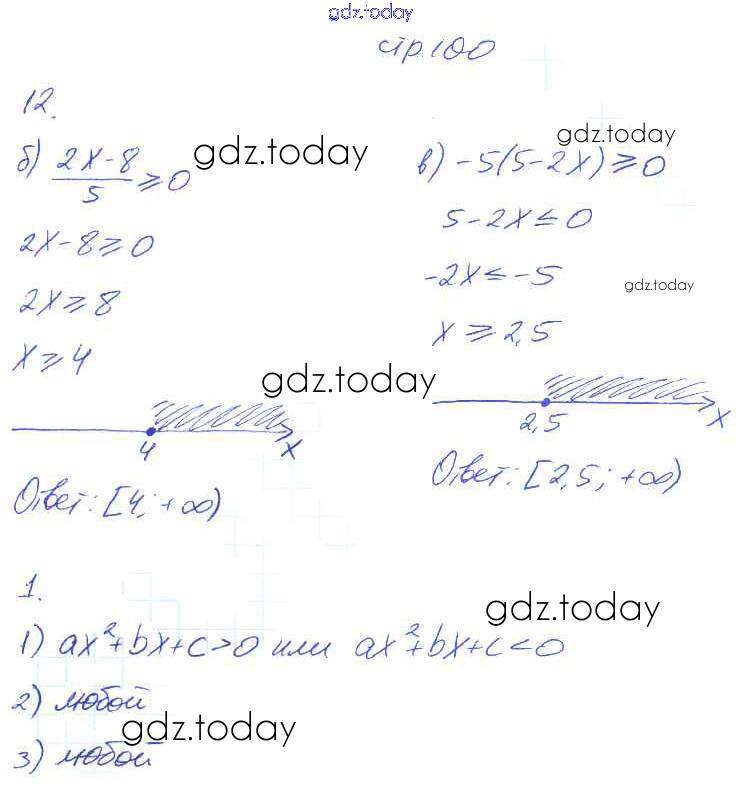 gdz.today
стр.100
12.
б) (2x-8)/5 ⩾ 0
gdz.today
2x-8⩾0
2x⩾8
x⩾4
4 x
Ответ: [4; +∞)
gdz.today
в) -5(5-2x)⩾0
5-2x≤0
-2x≤-5
gdz.today
x⩾2,5
gdz.today
2,5 x
Ответ: [2,5; +∞)
1.
gdz.today
1) ax²+bx+c>0 или ax²+bx+c<0
2) любой
gdz.today
3) любой